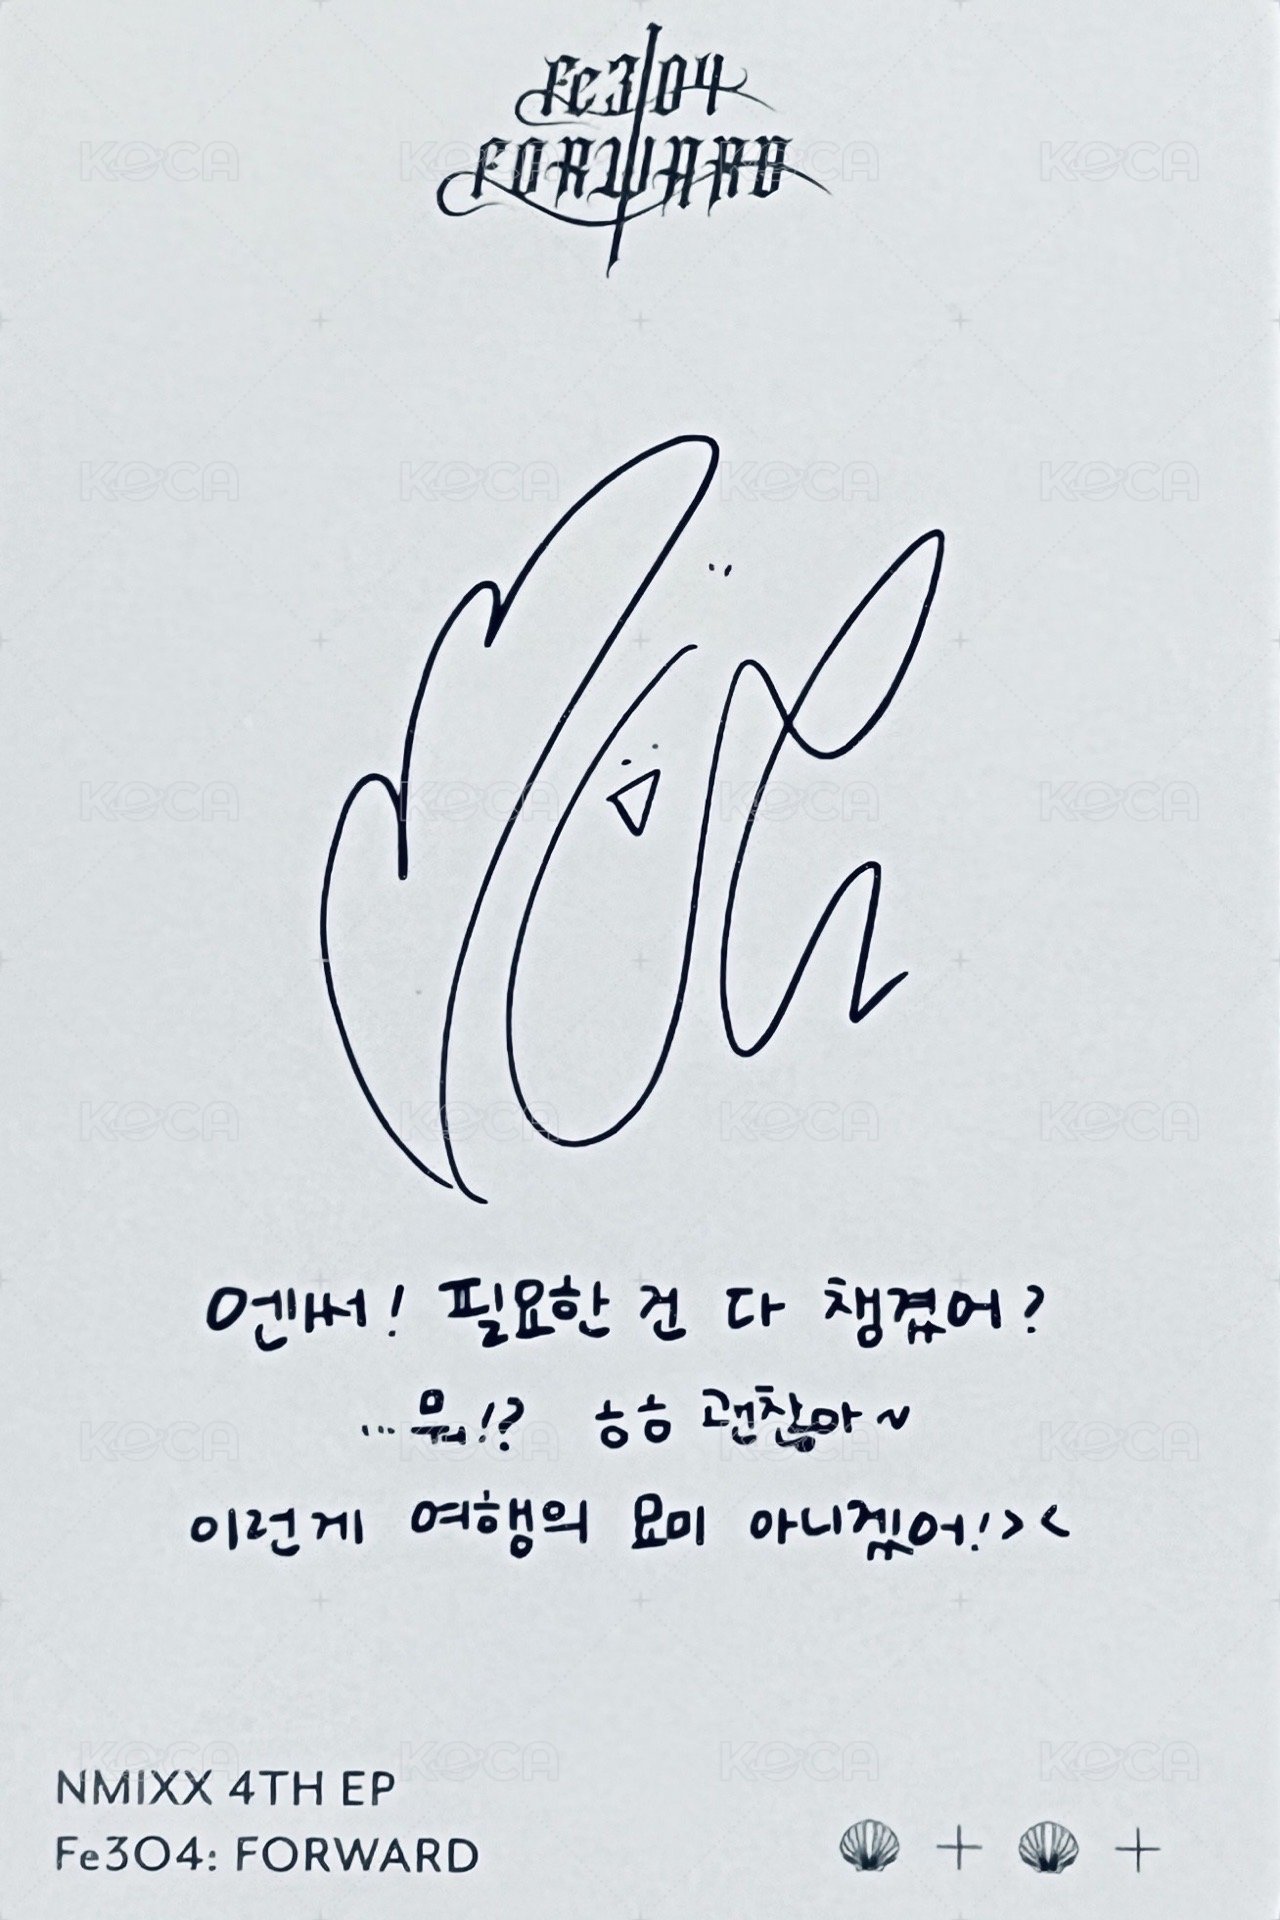 Fe3O4
FORWARD
엔써! 필요한 건 다 챙겼어?
...뭐!? ㅎㅎ 괜찮아~
이런게 여행의 묘미 아니겠어!><
NMIXX 4TH EP
Fe3O4: FORWARD
KOCA